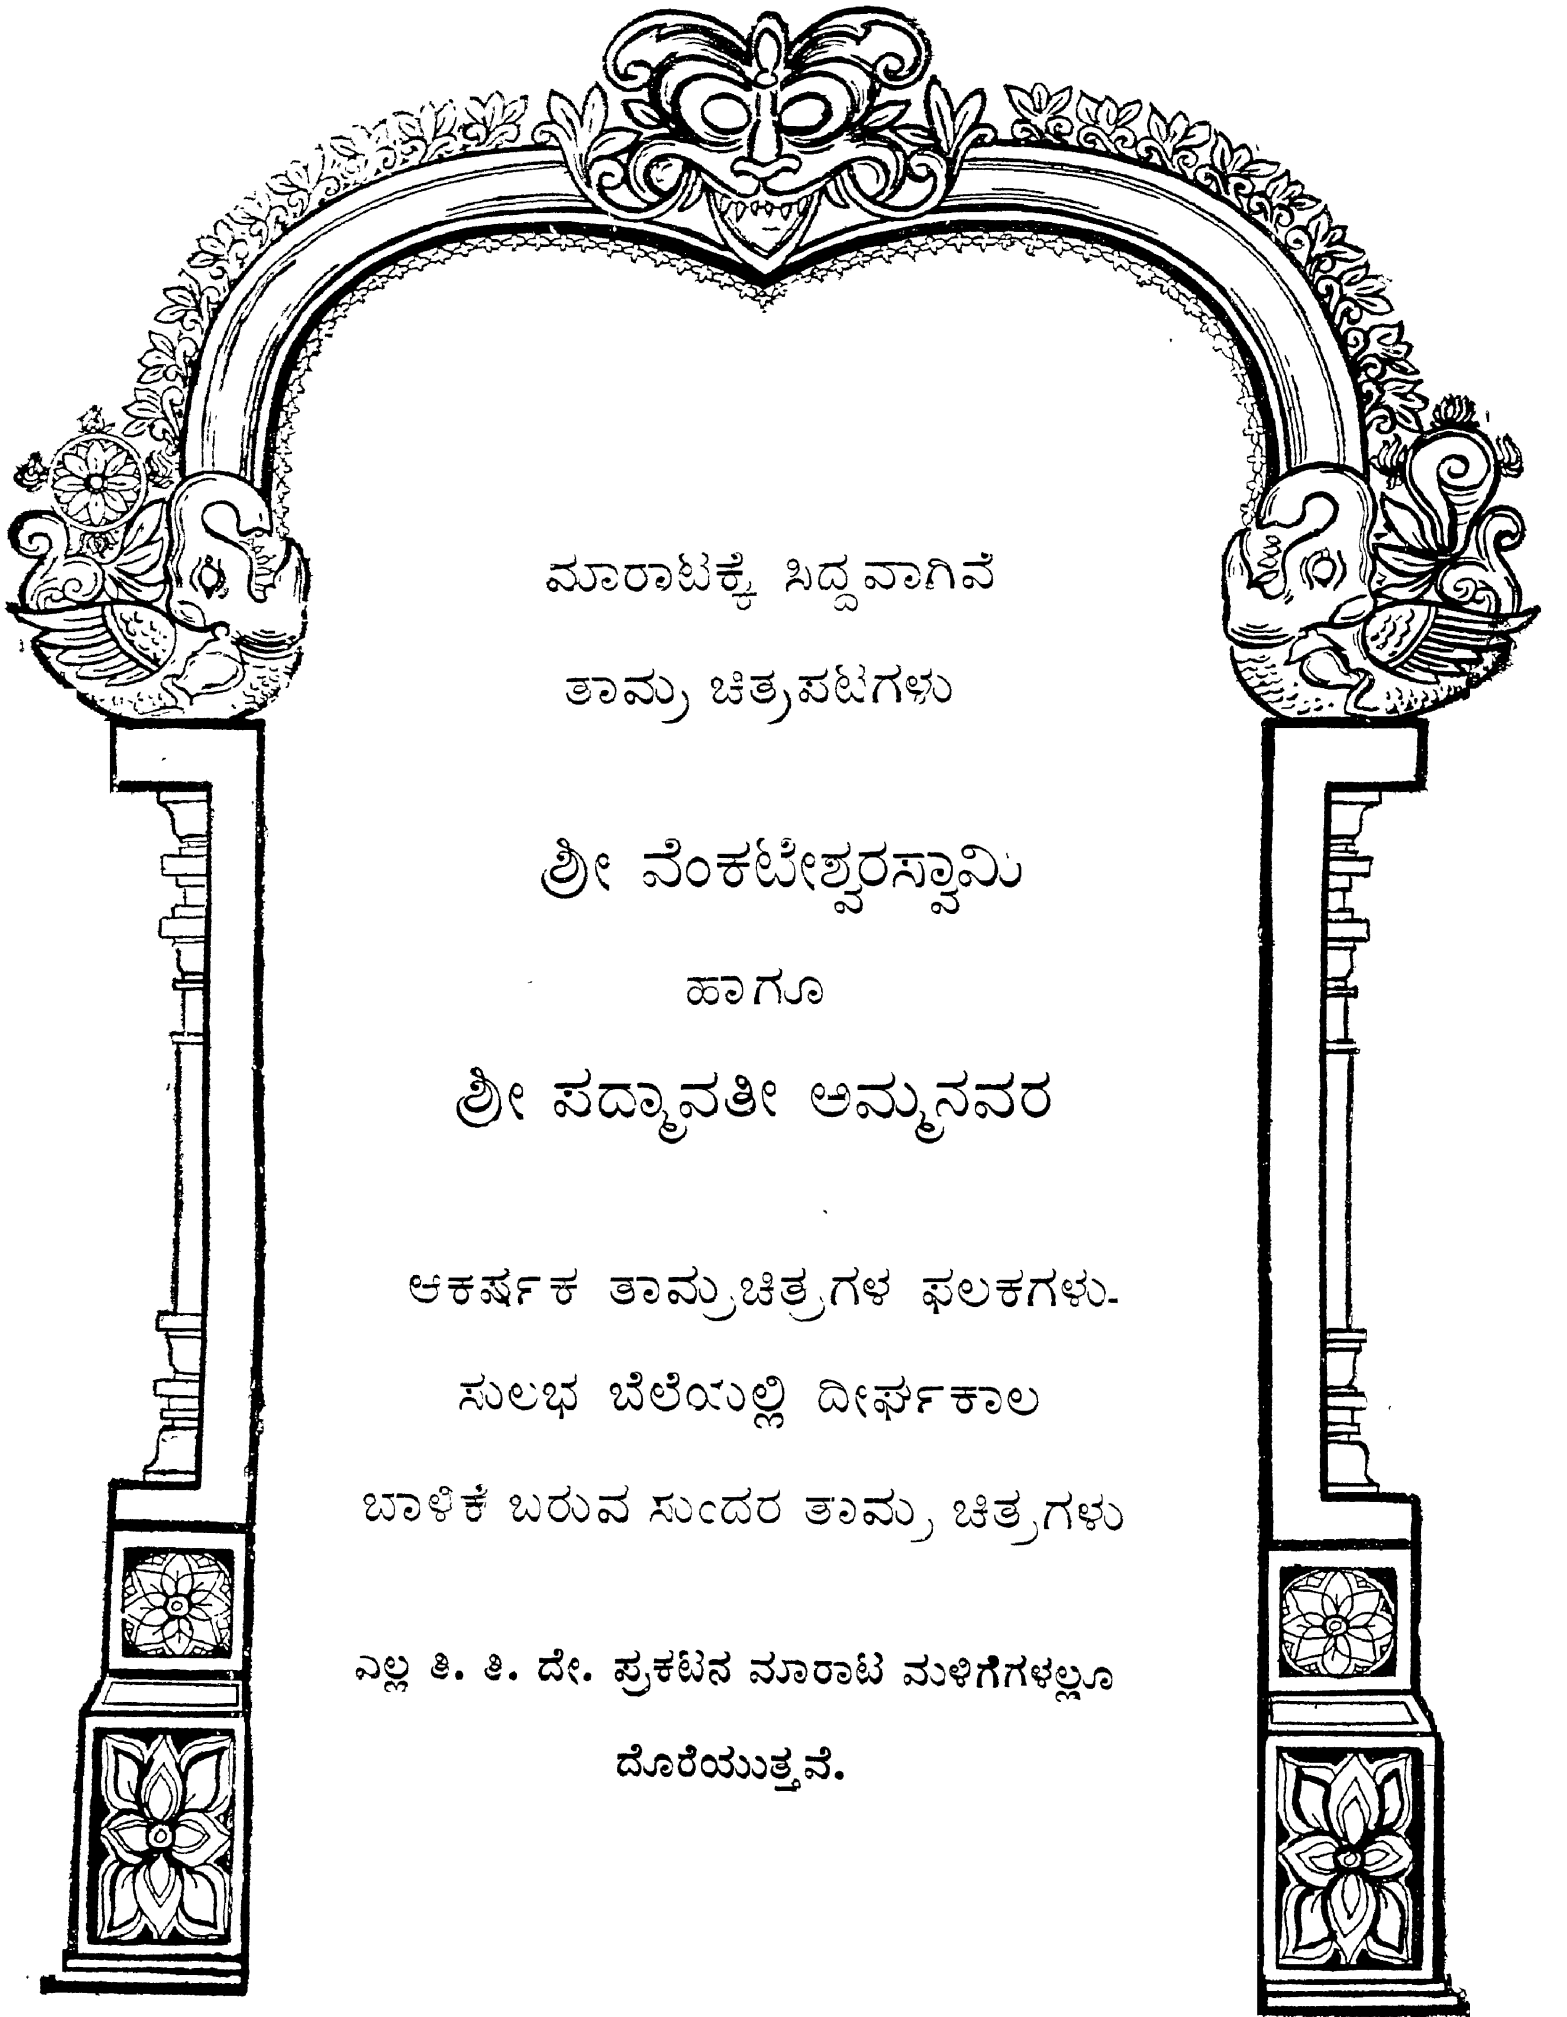 ಮಾರಾಟಕ್ಕೆ ಸಿದ್ದವಾಗಿವೆ
ತಾಮ್ರ ಚಿತ್ರಪಟಗಳು
ಶ್ರೀ ವೆಂಕಟೇಶ್ವರಸ್ವಾಮಿ
ಹಾಗೂ
ಶ್ರೀ ಪದ್ಮಾವತೀ ಅಮ್ಮನವರ
ಆಕರ್ಷಕ ತಾಮ್ರಚಿತ್ರಗಳ ಫಲಕಗಳು-
ಸುಲಭ ಬೆಲೆಯಲ್ಲಿ ದೀರ್ಘಕಾಲ
ಬಾಳಿಕೆ ಬರುವ ಸುಂದರ ತಾಮ್ರ ಚಿತ್ರಗಳು
ಎಲ್ಲ ತಿ. ತಿ. ದೇ. ಪ್ರಕಟನ ಮಾರಾಟ ಮಳಿಗೆಗಳಲ್ಲೂ
ದೊರೆಯುತ್ತವೆ.